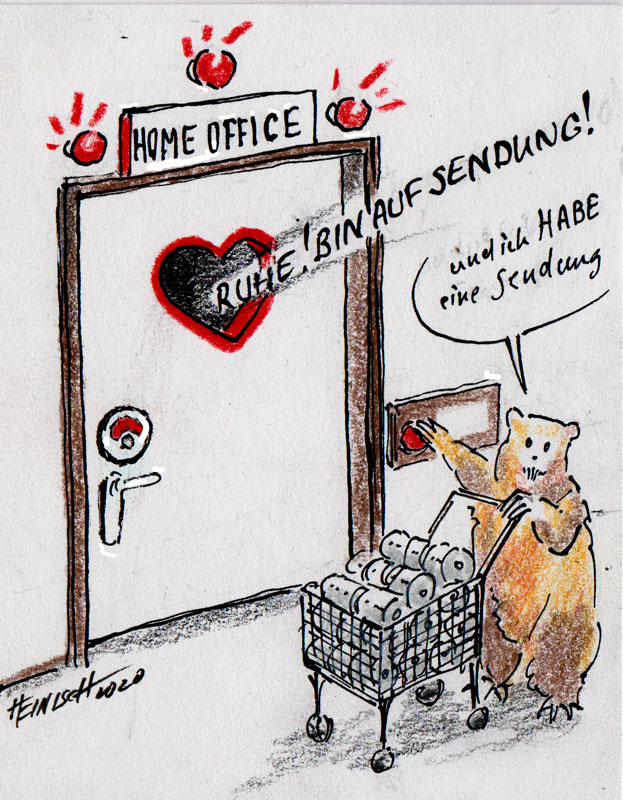 HOME OFFICE
RUHE! BIN AUF SENDUNG!
und ich HABE
eine Sendung
HEINISCH 2020